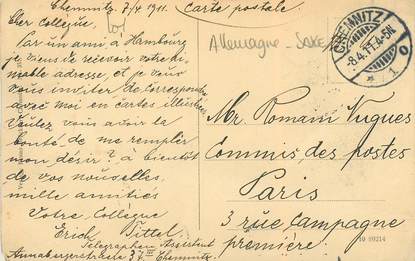 Chemnitz, 7/4 1911. Carte postale
Cher Collègue,
Par un ami à Hambourg
je viens de recevoir votre ai-
mable adresse, et je vous
vous inviter de correspondre
avec moi en cartes illustrées.
Voulez vous avoir la
bonté de me remplir
mon désir? à bientôt
de vos nouvelles.
mille amitiés
Votre Collègue
Erich Tittel
Telegraphen Assistent
Annabergerstrasse 37III Chemnitz
Allemagne - SAXE
CHEMNITZ
-8.4.11.4-5N.
* 1 o
Mr. Romain Vugues
Commis des postes
Paris
3 rue Campagne
première.
10 09214